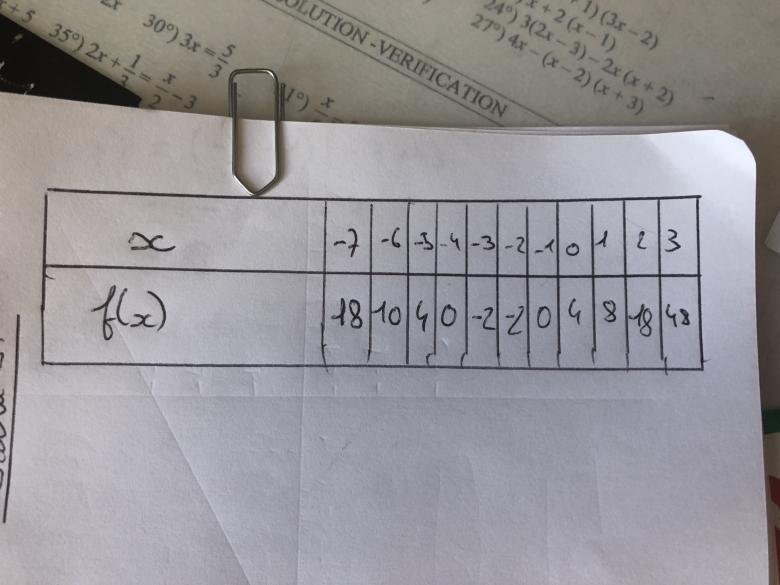 + 1) (3x − 2)
x + 2 (x − 1)
24°) 3(2x − 3) − 2x (x + 2)
27°) 4x − (x − 2) (x + 3)
SOLUTION - VERIFICATION
2x
30°) 3x = 5/3
x + 5
35°) 2x + 1/3 = x/2 − 3
1°) x
x -7 -6 -5 -4 -3 -2 -1 0 1 2 3
f(x) 18 10 4 0 -2 -2 0 4 8 18 48